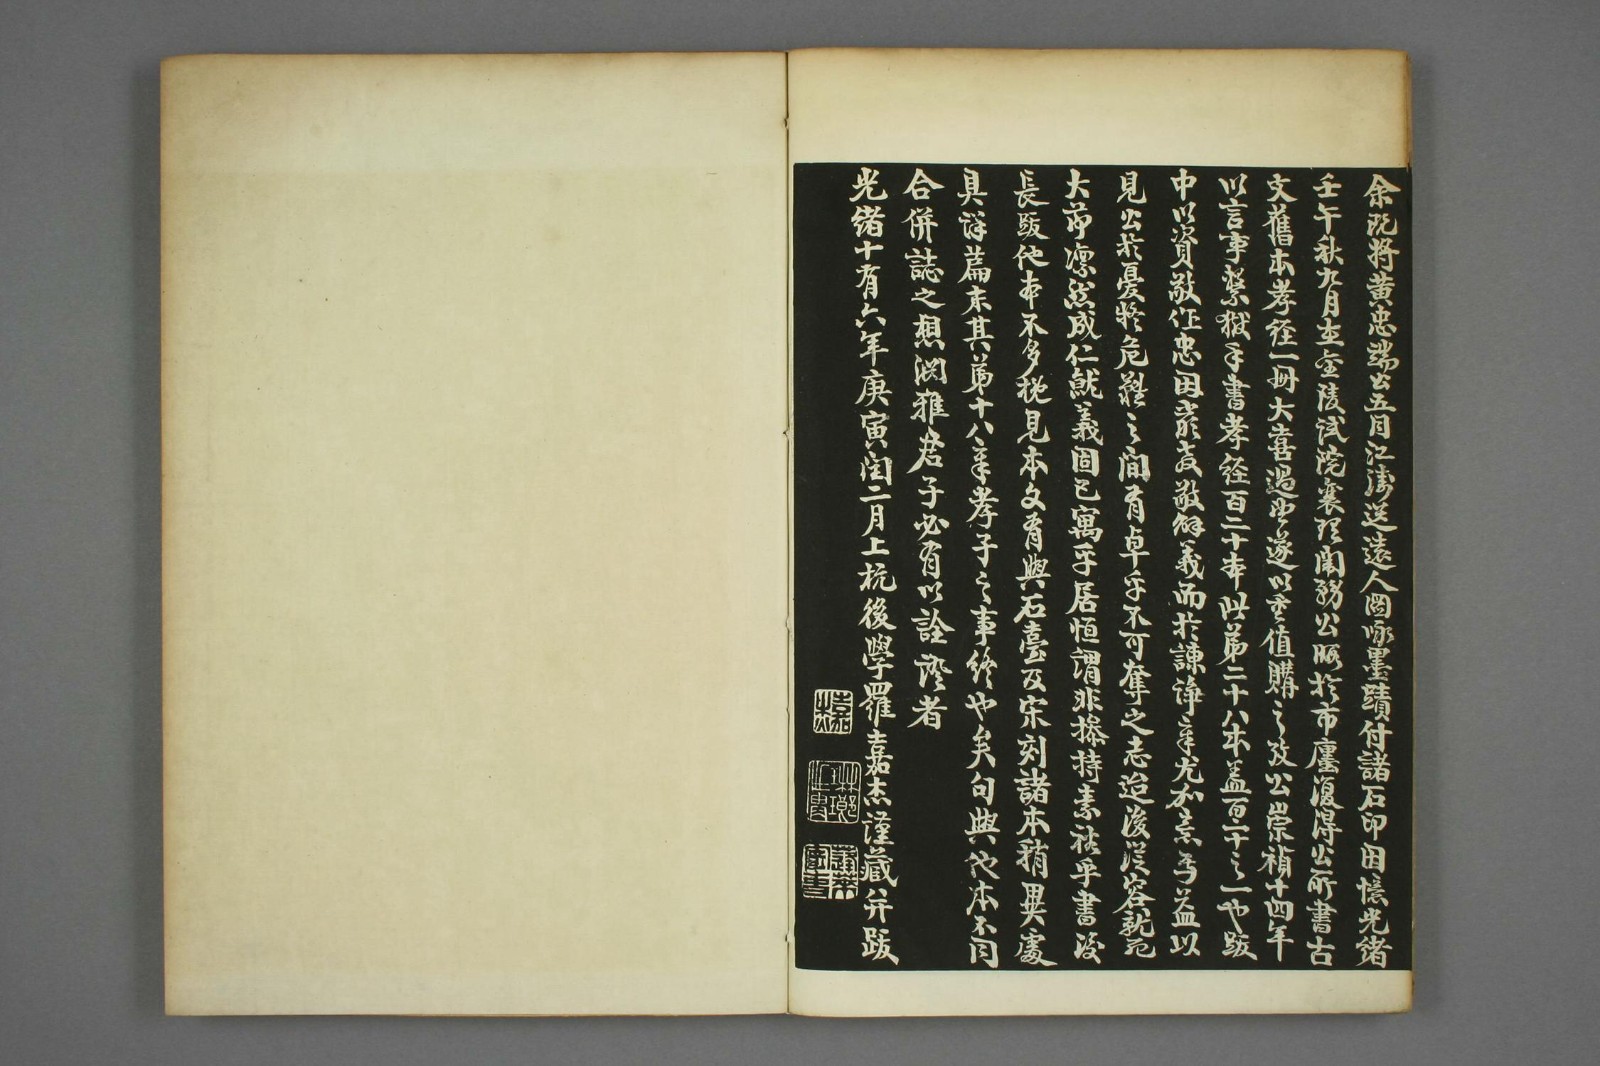 余既將黃忠端公五月江濤送遠人圖咏墨蹟付諸石印因憶光緒
壬午秋九月在金陵試院襄理闈務公暇於市廛復得公所書古
文舊本孝經一冊大喜過望遂以重值購之攷公崇禎十四年
以言事繫獄手書孝經百二十本此第二十八本蓋百二十之一也跋
中以資敬作忠因嚴教敬解義而於諫諍章尤加意焉益以
見公於憂勞危難之間有卓乎不可奪之志迨後從容就死
大節凜然成仁就義固已寓乎居恒謂非操持素裕乎書後
長跋他本不多概見本文有與石臺及宋刻諸本稍異處
具詳篇末其第十八章孝子之事終也矣句與他本不同
合併誌之想淵雅君子必有以詮證者
光緒十有六年庚寅閏二月上杭後學羅嘉杰謹藏并跋
嘉杰